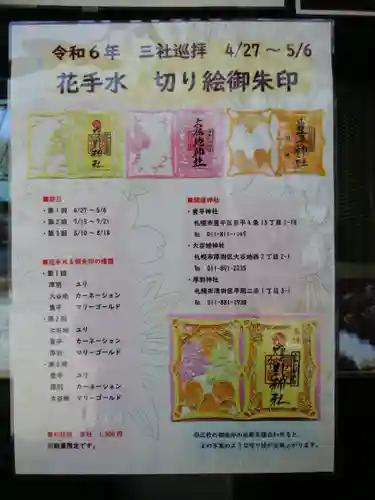 令和６年　三社巡拝　4/27～5/6
花手水　切り絵御朱印
大谷地神社
■期日
・第１回　4/27～5/6
・第２回　7/13～7/21
・第３回
■開催神社
・豊平神社
札幌市豊平区豊平４条13丁目1-18
℡ 011-811-1049
・大谷地神社
札幌市厚別区大谷地西2丁目2-1
℡ 011-891-2235
・厚別神社
札幌市清田区平岡二条1丁目3-1
℡ 011-881-2938
・第１回
厚別　ユリ
大谷地　カーネーション
豊平　マリーゴールド
・第２回
大谷地　ユリ
豊平　カーネーション
厚別　マリーゴールド
・第３回
豊平　ユリ
厚別　カーネーション
大谷地　マリーゴールド
■初穂料　各社　1,500円
※数量限定です。